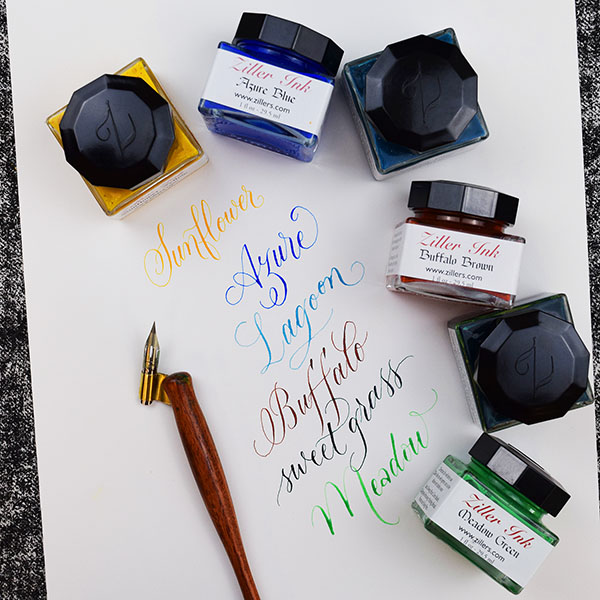 Ziller Ink
Azure Blue
www.zillers.com
1 fl oz - 29.5 ml
Ziller Ink
Buffalo Brown
www.zillers.com
1 fl oz - 29.5 ml
Sunflower
Azure
Lagoon
Buffalo
sweet grass
Meadow
Ziller Ink
Meadow Green
www.zillers.com
1 fl oz - 29.5 ml